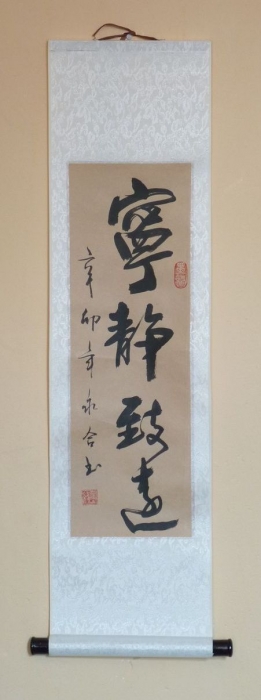 寧静致遠
辛卯年永合书